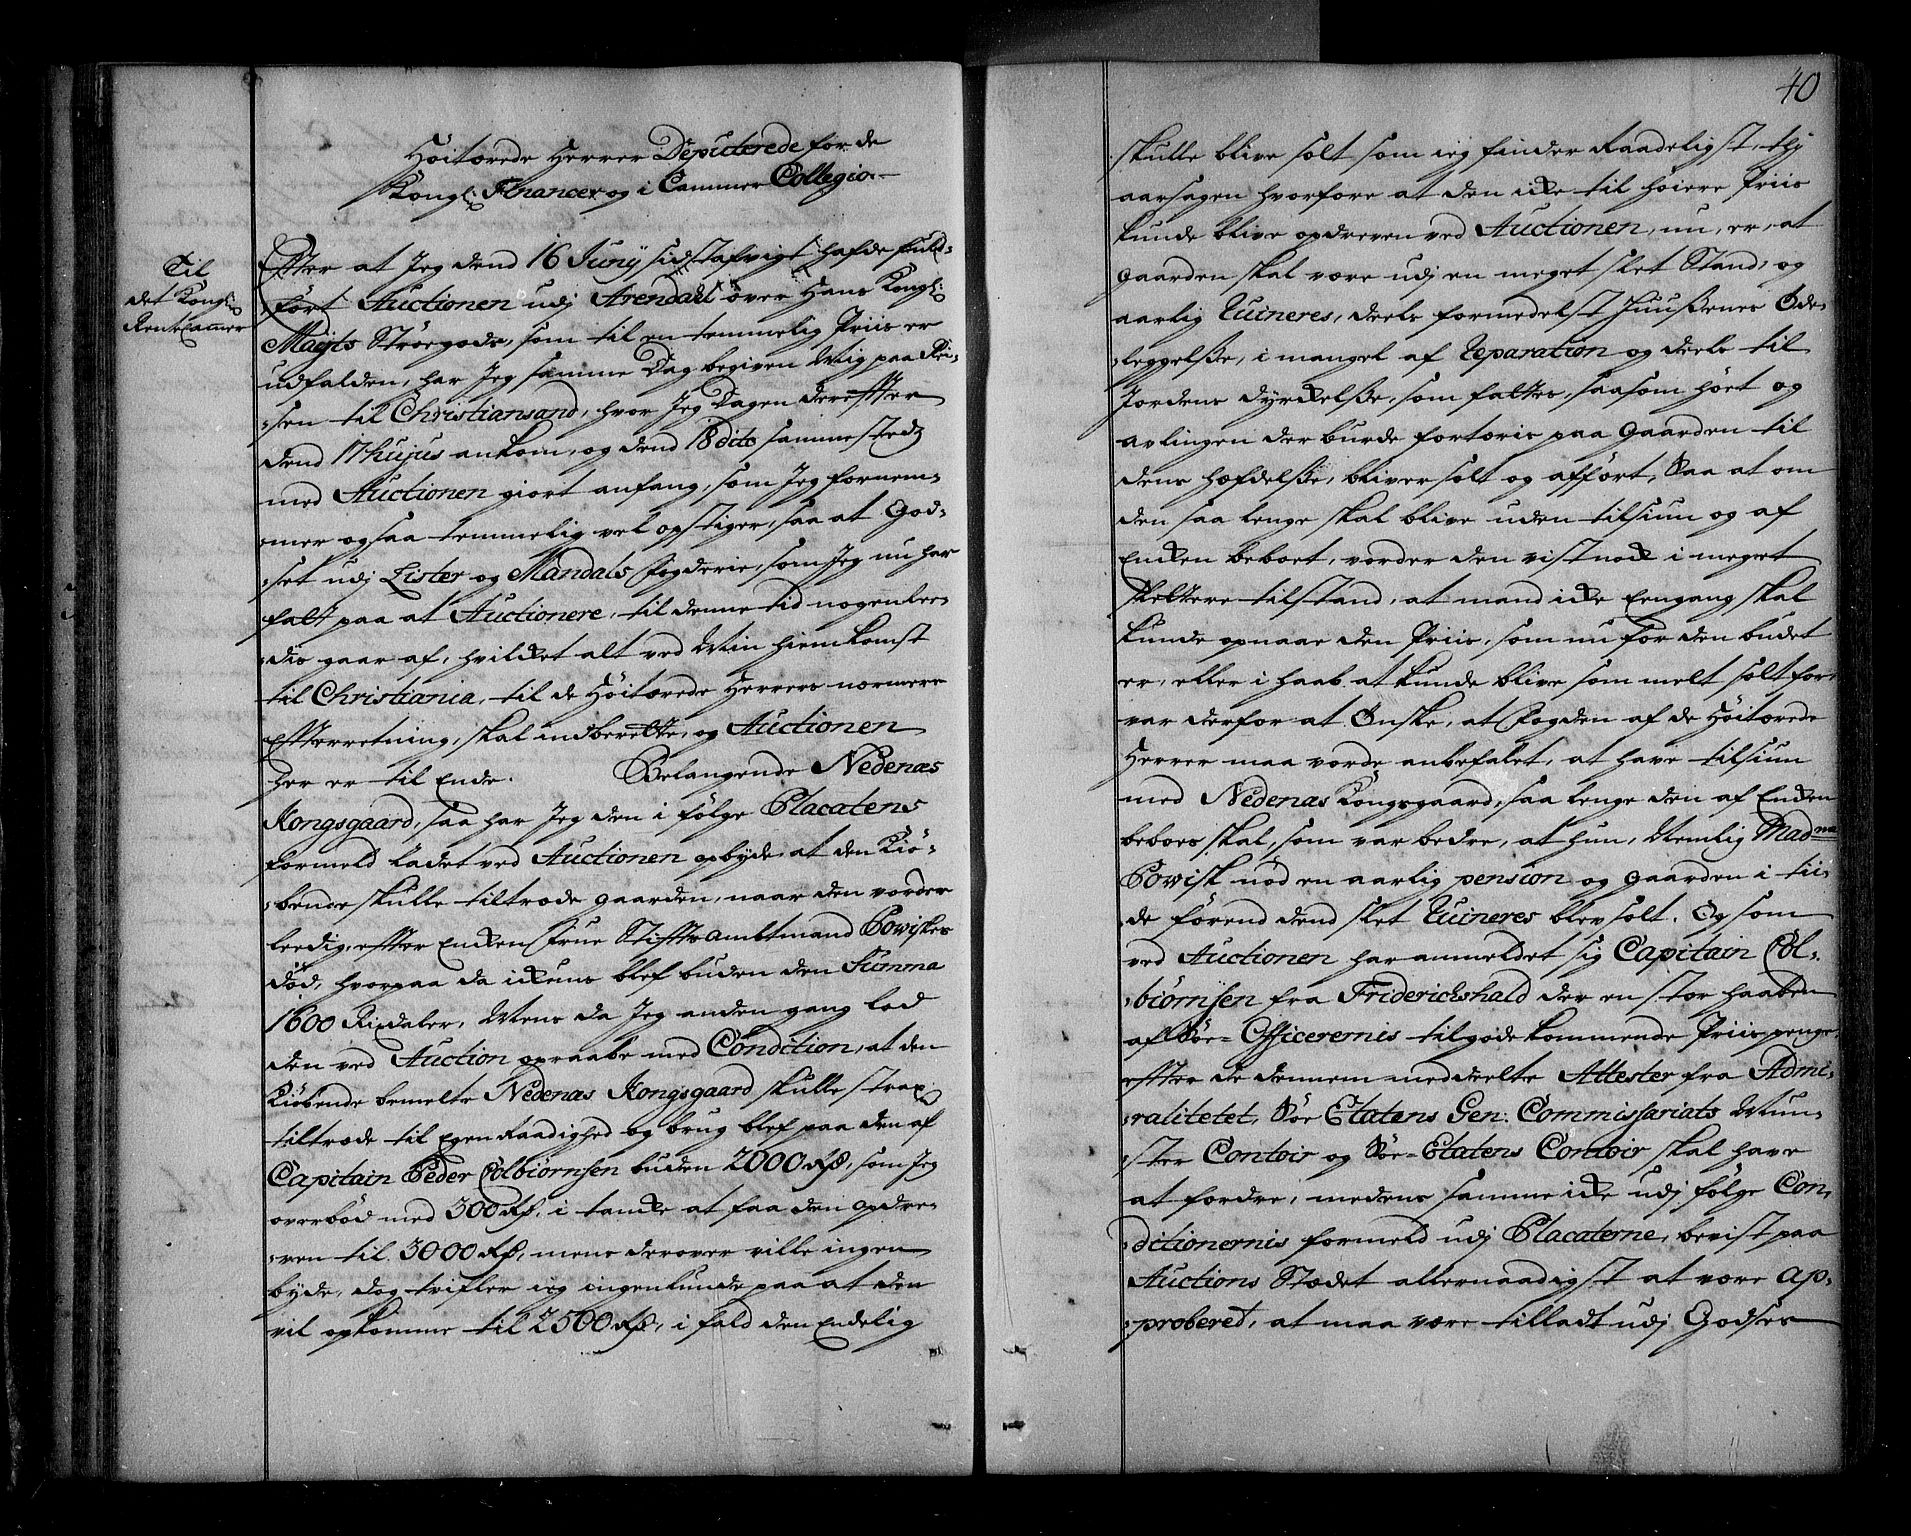 Høitærede Herrer Deputerede for de
Kongl: Financer og i Cammer Collegio.
Til
det Kongl:
Rente Camer
Efter at Jeg dend 16 Juny sidstafvigt hafde fuld-
ført Auctionen udj Arendael over Hans Kongl:
Mayts Strøegods, som til en temmelig Priis er
udfalden, har Jeg samme Dag begiven Mig paa Rei-
sen til Christiansand, hvor Jeg Dagen derefter
dend 17 hujus ankom, og dend 18 dito sammestedz
med Auctionen giort anfang, som Jeg fornem-
mer ogsaa temmelig vel opstiger, saa at God-
set udj Lister og Mandals Fogderie, som Jeg nu har
falt paa at Auctionere, til denne tid nogenlee-
dis gaar af, hvilket alt ved Min hiemkomst
til Christiania, til de Høitærede Herrers nærmere
Efterretning, skal indberette, og Auctionen
her er til Ende. Belangende Nedenæs
Kongsgaard, saa har Jeg den i følge Placatens
formeld ladet ved Auctionen opbyde, at den Kiø-
bende skulle tiltræde gaarden, naar den vorder
leedig, efter Encken Frue Stiftsambtmand Poviskes
død, hvorpaa da ickuns blef buden den Summa
1600 Rixdaler, Mens da Jeg anden gang lod
den ved Auction opraabe med Condition, at den
Kiøbende bemelte Nedenæs Kongsgaard skulle strax
tiltræde til Egen Raadighed og brug blef paa den af
Capitain Peder Colbiørnsen buden 2000 Rd, som Jeg
overbød med 300 Rd, i tancke at faa den opdre-
ven til 3000 Rd, mens derover ville ingen
byde, dog tvifler ieg ingenlunde paa at den
vil opkomme til 2500 Rd, i fald den Endelig
40
skulle blive solt som ieg finder Raadeligst, thj
aarsagen hvorfore at den icke til høiere Priis
kunde blive opdreven ved Auctionen, nu, er, at
Gaarden skal være udj en meget slet Stand, og
aarlig Ruineres, deels formedelst Huußenes Øde-
leggelße, i mangel af Reparation og deels til
Jordens dyrckelße, som fattes, saasom høet og
avlingen der burde fortæris paa Gaarden til
dens hæfdelße, bliver solt og afført, Saa at om
den saa lenge skal blive uden tilsiun og af
Encken beboet, vorder den vistnock i meget
slettere tilstand, at mand icke Eengang skal
kunde opnaae den Priis, som nu for den budet
er, eller i haab at kunde blive som melt solt for
var derfor at Ønske, at Fogden af de Høitærede
Herrer maa vorde anbefalet, at have tilsiun
med Nedenæs Kongsgaard, saa lenge den af Encken
beboes skal, som var bedre, at hun, Nemlig Madme
Povisk nød en aarlig pension og Gaarden i tii-
de førend dend slet Ruineres blev solt. Og som
ved Auctionen har anmeldet sig Capitain Col-
biørnsen fra Friderichshald der en stor haaben
af Søe-Officerernis tilgodekommende Priispenge
efter de dennem meddeelte Attester fra Admi-
ralitetet, Søe Etatens Gen: Commissariats Mun-
ster Contoir og Søe-Etatens Contoir skal have
at fordre, medens samme icke udj følge Con-
ditionernis formeld udj Placaterne, bevist paa
Auctions Stædet allernaadigst at være ap-
proberet, at maa være tilladt udj Godses